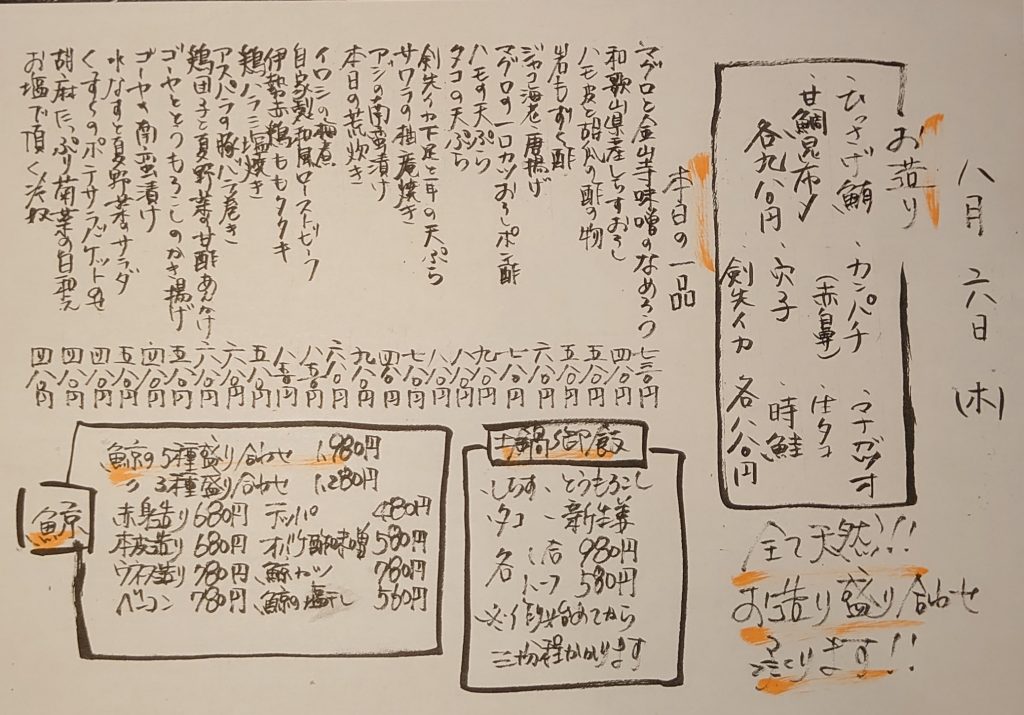 八月六日(木)
お造り
ひっさげ鮪
カンパチ
マナガツオ
甘鯛昆布〆
(赤鼻)
生タコ
各九八〇円
穴子
時鮭
剣先イカ
各八八〇円
全て天然!!
お造り盛り合わせ
ます!!
本日の一品
マグロと金山寺味噌のなめろう 七三〇円
和歌山県産しらすおろし 四八〇円
ハモ皮と胡瓜の酢の物 五八〇円
岩もずく酢 五八〇円
ジャコ海老唐揚げ 六八〇円
マグロの一口カツおろしポン酢 七八〇円
ハモの天ぷら 九八〇円
タコの天ぷら 八八〇円
剣先イカ下足と耳の天ぷら 八八〇円
サワラの柚庵焼き 七八〇円
アジの南蛮漬け 四八〇円
本日の荒炊き 九八〇円
イワシの梅煮 六八〇円
自家製和風ローストビーフ 八五〇円
伊勢赤鶏ももタタキ 八五〇円
鶏ハラミ塩焼き 五八〇円
アスパラの豚バラ巻き 六八〇円
鶏団子と夏野菜の甘酢あんかけ 六八〇円
ゴーヤととうもろこしのかき揚げ 五八〇円
ゴーヤの南蛮漬け 四八〇円
水なすと夏野菜のサラダ 五八〇円
くずし〜のポテサラバケット 四八〇円
胡麻たっぷり菊菜の白和え 四八〇円
お塩で頂く冷奴 四八〇円
土鍋御飯
・しらす ・とうもろこし
・タコ ・新生姜
各 一合 980円
ハーフ 580円
※注文
三十分程かかります
鯨
鯨の5種盛り合わせ 1,980円
〃 3種盛り合わせ 1,280円
赤身造り 680円 テッパ 480円
本皮造り 680円 オバケ酢味噌 580円
ウネス造り 780円 鯨カツ 780円
ベーコン 780円 鯨の塩干し 560円